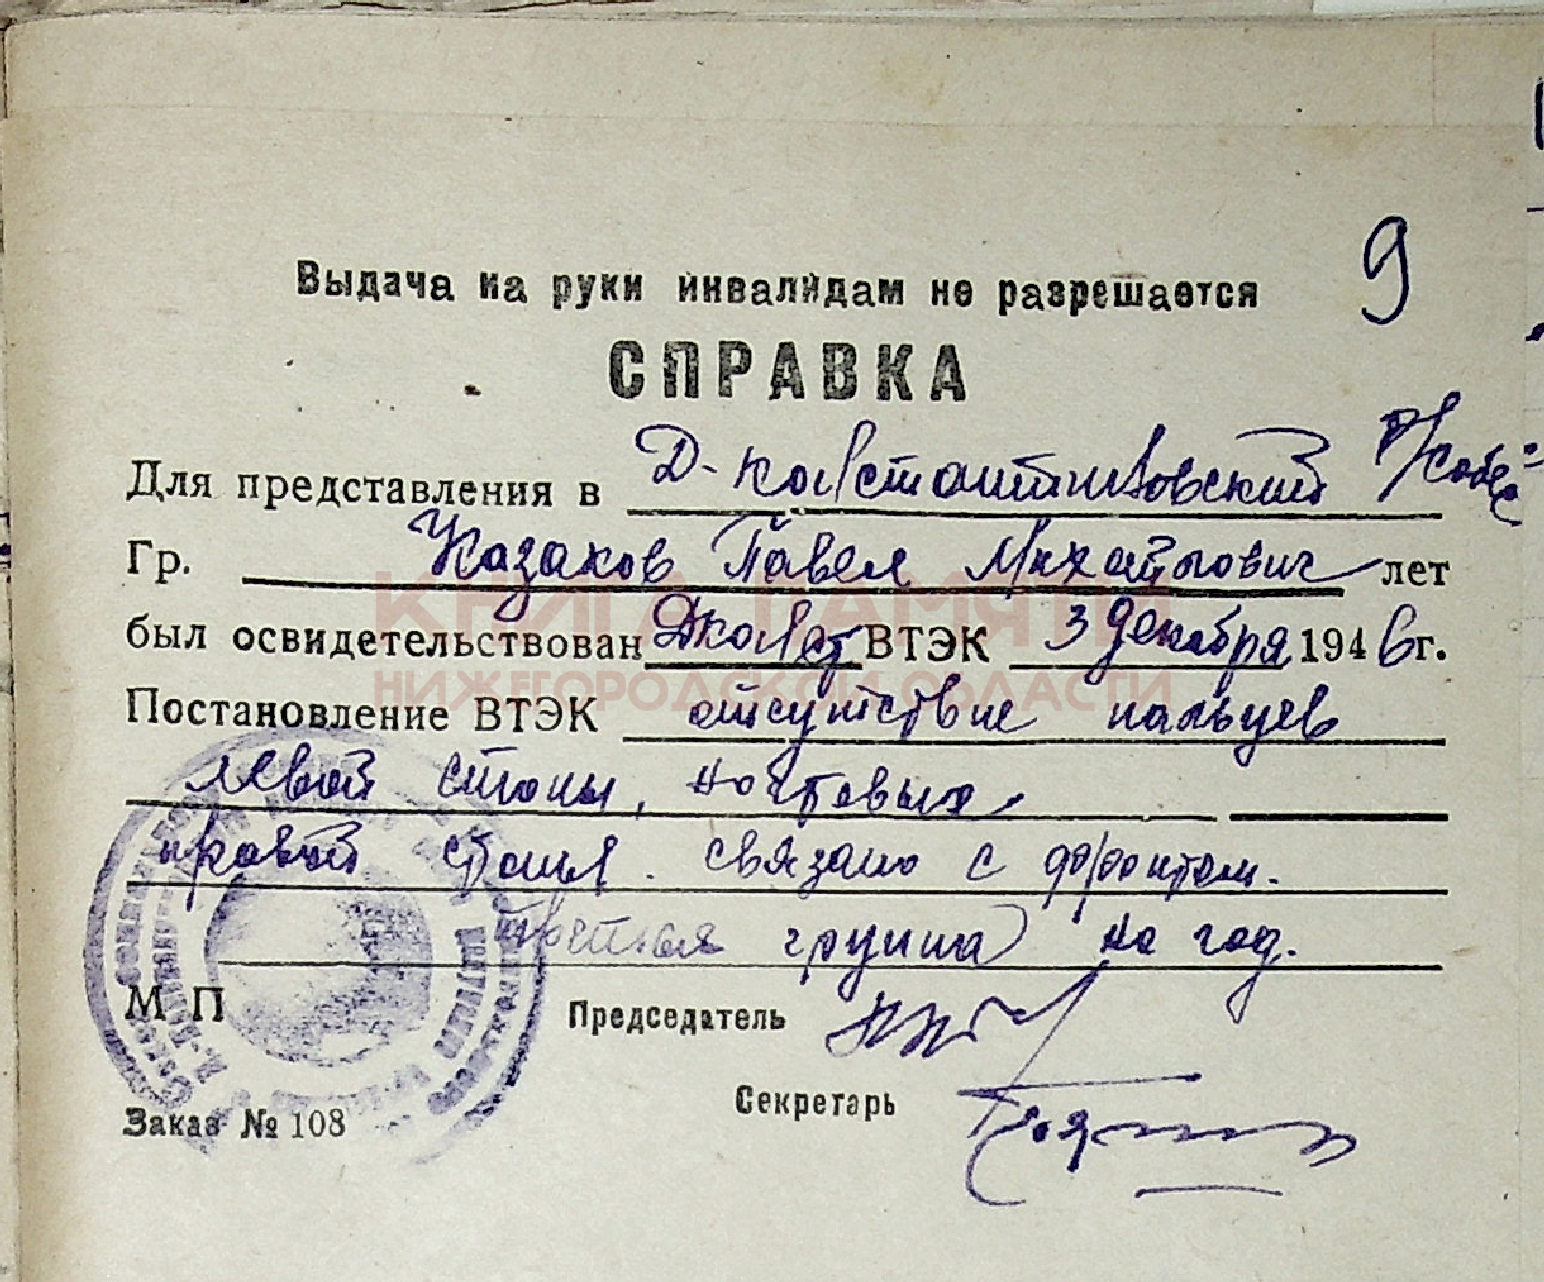 9
Выдача на руки инвалидам не разрешается
СПРАВКА
Для представления в Д-Константиновский Р/собес
Гр. Казаков Павел Михайлович лет
был освидетельствован Дконст ВТЭК 3 декабря 1946 г.
Постановление ВТЭК отсутствие пальцев
левой стопы,
правой стопы. связано с фронтом.
третья группа на год.
М П
Председатель
Секретарь
Заказ № 108
КНИГА ПАМЯТИ
НИЖЕГОРОДСКОЙ ОБЛАСТИ